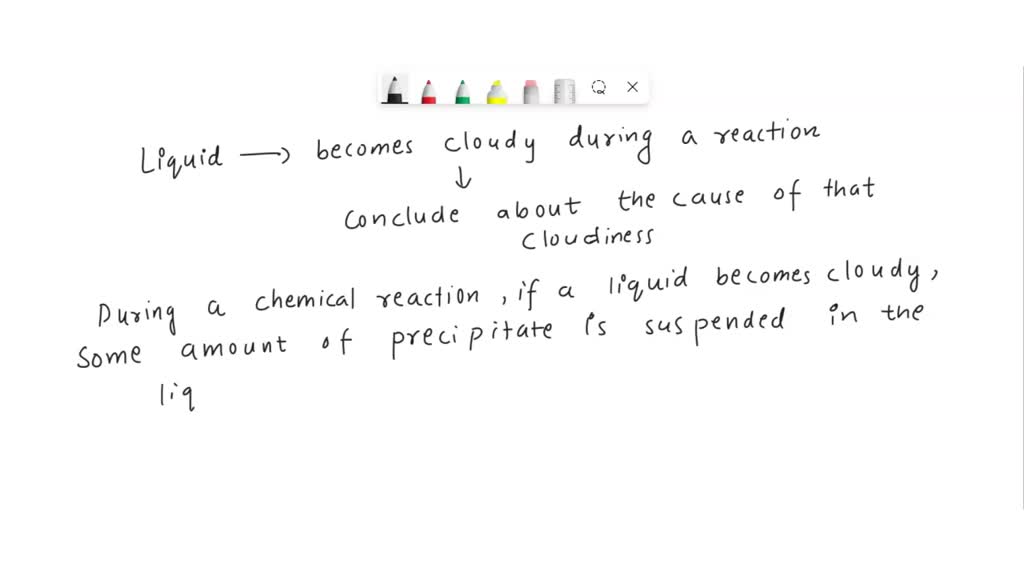 Liquid → becomes cloudy during a reaction
↓
Conclude about the cause of that
cloudiness
During a chemical reaction, if a liquid becomes cloudy,
some amount of precipitate is suspended in the
liq